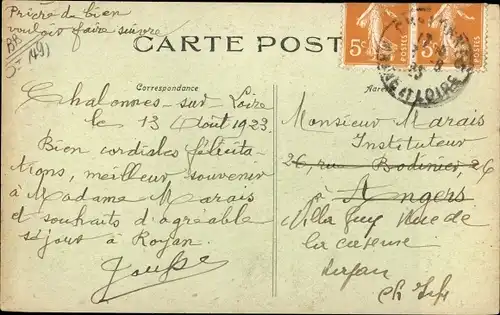 Prière de bien
vouloir faire suivre
CARTE POSTALE
5c POSTES
Correspondance
Chalonnes-sur-Loire
le 13 Août 1923
Bien cordiales félicita-
tions, meilleur souvenir
à Madame Marais
et souhaits d'agréable
séjour à Royan.
Monsieur Marais
Instituteur
26, rue Bodinier, 26
à Angers
Villa Guy Rue de
la caserne
Royan
Ch Inf